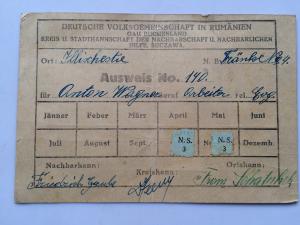 DEUTSCHE VOLKSGEMEINSCHAFT IN RUMÄNIEN
GAU BUCHENLAND
KREIS U STADTMANNSCHAFT DES NACHBARSCHAFT U NACHBARLICHEN
HILFE, SUCZAWA
Ort: Illischestie N. B. Fränkv No. 4.
Ausweis No. 140.
für Anton Wagner Beruf Arbeiter rel. Evg.
Jänner Feber März April Mai Juni
Juli August Sept. N.S. 3 N.S. 3 Dezemb.
Nachbarhann: Kreishann: Ortshann:
Friedrich